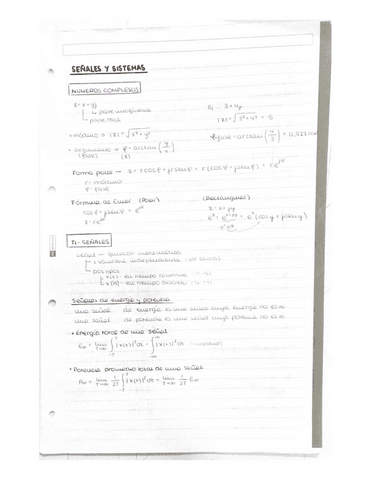 SEÑALES Y SISTEMAS
NÚMEROS COMPLEJOS
z = x + yj
parte imaginaria
parte real
Ej: 3+4j
|z| = √3²+4² = 5
• módulo → |z| = √x²+y²
fase = arctan (4/3) = 0,927 rad
• argumento → φ = arctan (y/x)
(fase)
Forma polar → z = r cos φ + j r sen φ = r (cos φ + j sen φ) = r e^jφ
r = módulo
φ = fase
Fórmula de Euler (Polar)
(Rectangular)
cos φ + j sen φ = e^jφ
z = x + jy
e^z = e^x+jy = e^x (cos y + j sen y)
e^x e^jy
T1 - SEÑALES
Señal → función matemática
1 variable independiente
Dos tipos
x(t) → en tiempo continuo
x[n] → en tiempo discreto
Señales de energía y potencia
una señal de energía es una señal cuya energía no es ∞
una señal de potencia es una señal cuya potencia no es ∞
• Energía total de una señal
E∞ = lim T→∞ ∫ -T T |x(t)|² dt = ∫ -∞ ∞ |x(t)|² dt
• Potencia promedio total de una señal
P∞ = lim T→∞ 1/2T ∫ -T T |x(t)|² dt = lim T→∞ 1/2T E∞